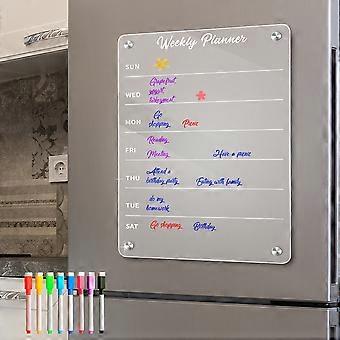 Weekly Planner
SUN
Grapefruit
yogurt
WED
MON
Go
shopping
Picnic
Reading
FRI
Meeting
Have a picnic
THU
Attend a
birthday party
Eating with family
TUE
do my
homework
SAT
Go shopping
Birthday